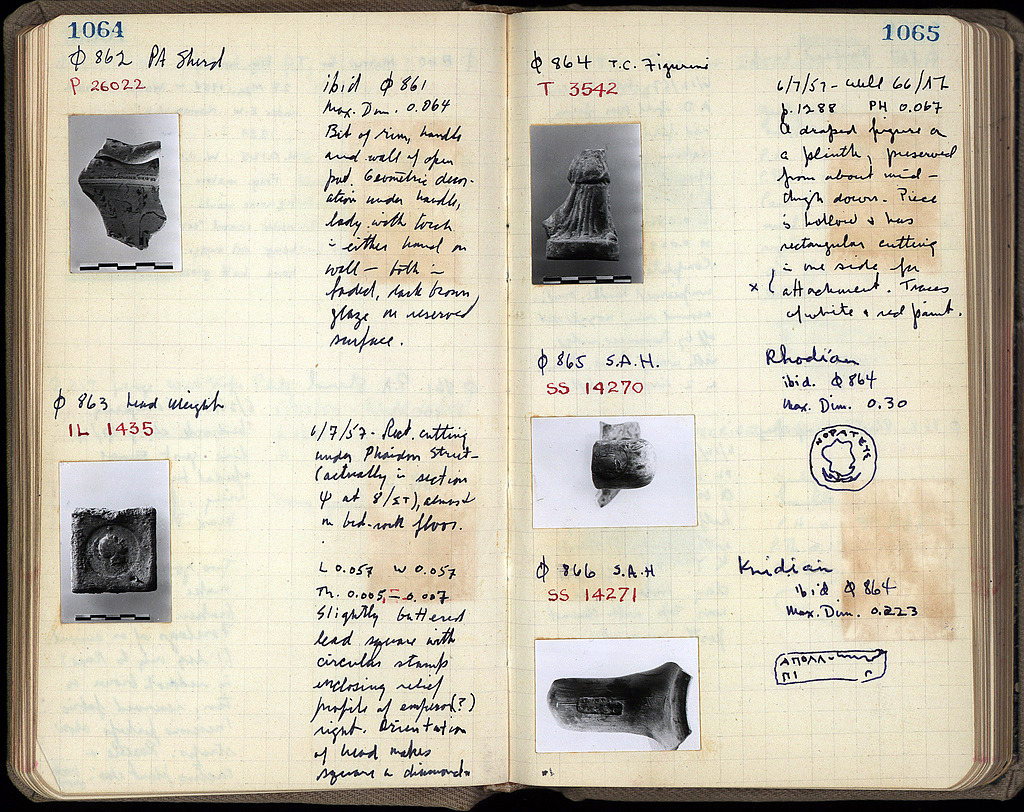 1064
Φ 862 PA Sherd
P 26022
ibid Φ 861
Max. Dim. 0.064
Bit of rim, handle
and wall of open
pot. Geometric decor-
ation under handle,
lady with torch
in either hand on
wall – both in
faded, dark brown
glaze on reserved
surface.
Φ 863 Lead Weight
IL 1435
6/7/57 - Rect. cutting
under Phaidon Street –
(actually in section
Ψ at 8/ΣΤ), almost
on bed-rock floor.
L 0.057 W 0.057
Th. 0.005 – 0.007
Slightly battered
lead square with
circular stamp
enclosing relief
profile of emperor(?)
right. Orientation
of head makes
square a diamond
1065
Φ 864 T.C. Figurine
T 3542
6/7/57 - Well 66/ΛΖ
p. 1288 PH 0.067
A draped figure on
a plinth, preserved
from about mid-
thigh down. Piece
is hollow & has
rectangular cutting
in one side for
x attachment. Traces
of white & red paint.
Φ 865 S.A.H.
SS 14270
Rhodian
ibid. Φ 864
Max. Dim. 0.30
Φ 866 S.A.H
SS 14271
Knidian
ibid Φ 864
Max. Dim. 0.223
ΑΠΟΛΛ
ΠΙ